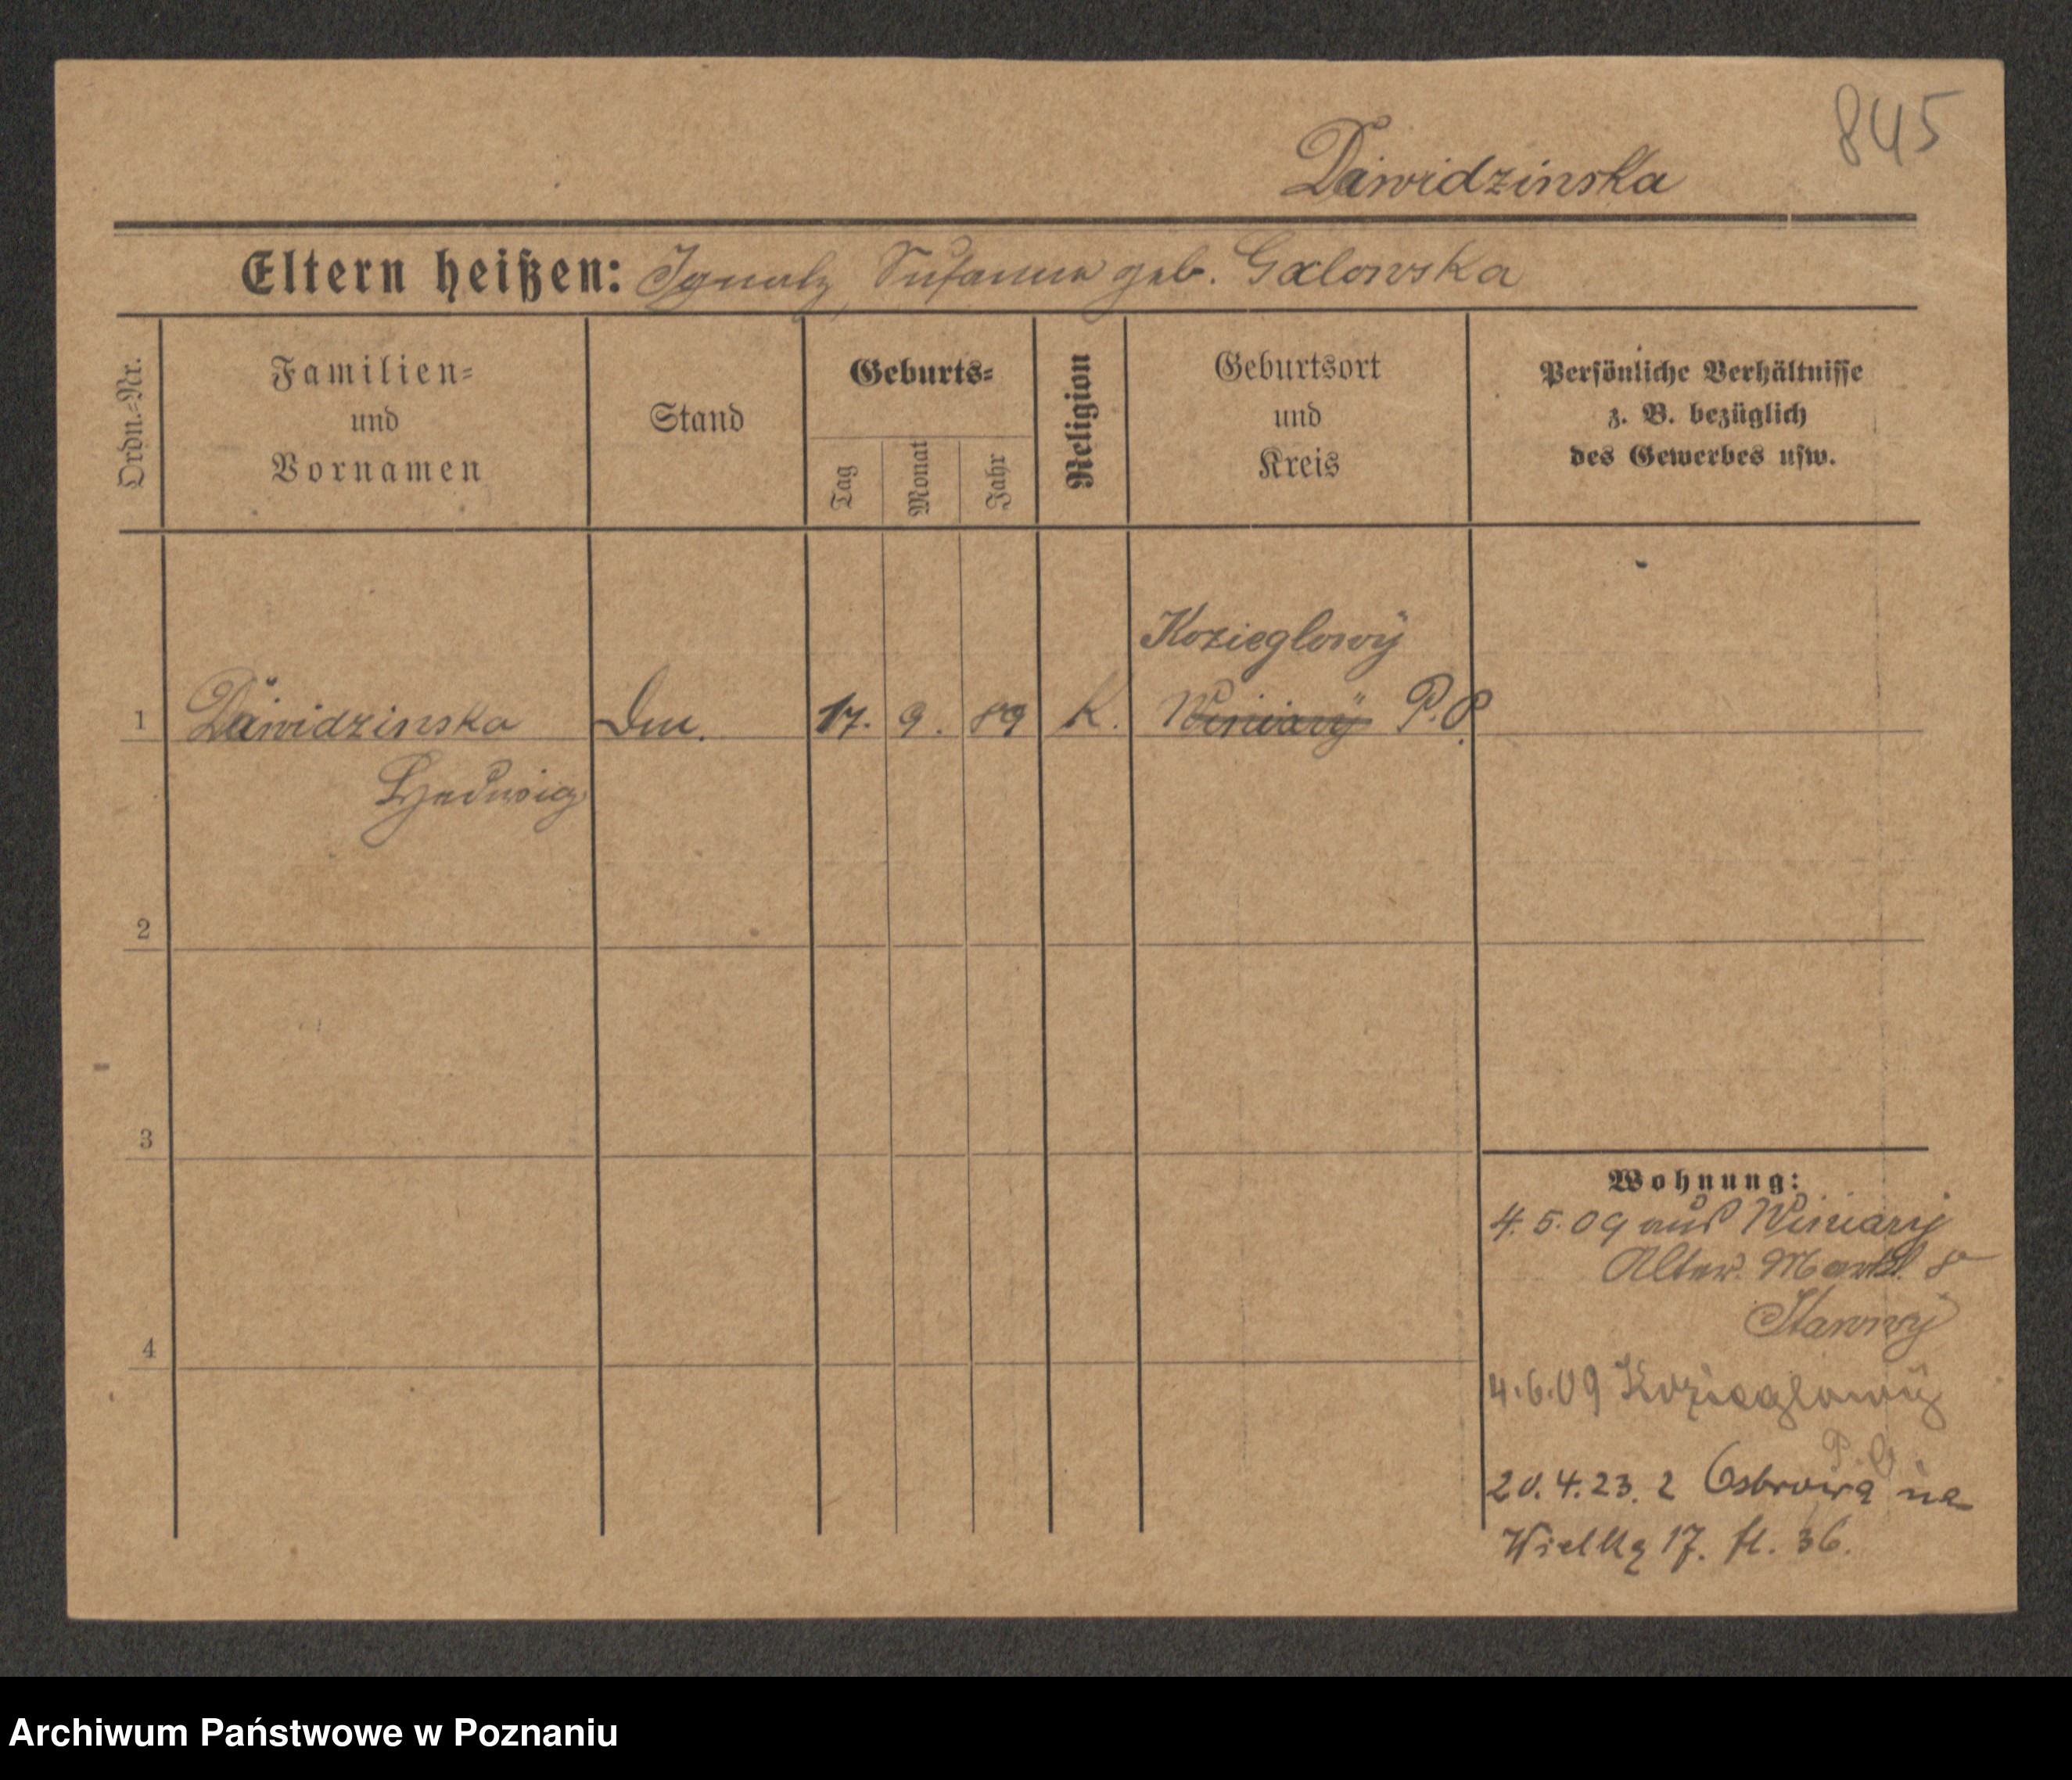 845
Dawidzinska
Eltern heißen: Ignatz, Susanna geb. Galowska
Ordn.=Nr.
Familien=
und
Vornamen
Stand
Geburts=
Tag
Monat
Jahr
Religion
Geburtsort
und
Kreis
Persönliche Verhältnisse
z. B. bezüglich
des Gewerbes usw.
Kozieglowy
1 Dawidzinska 17. 9. 89 K. Winiary P.O.
Hedwig
2
3
4
Wohnung:
4.5.09 aus Winiary
Alter Markt 8
4.6.09 Kozieglowy
P.O.
20.4.23. z Ostrowa na
Wielką 17. 36.
Archiwum Państwowe w Poznaniu